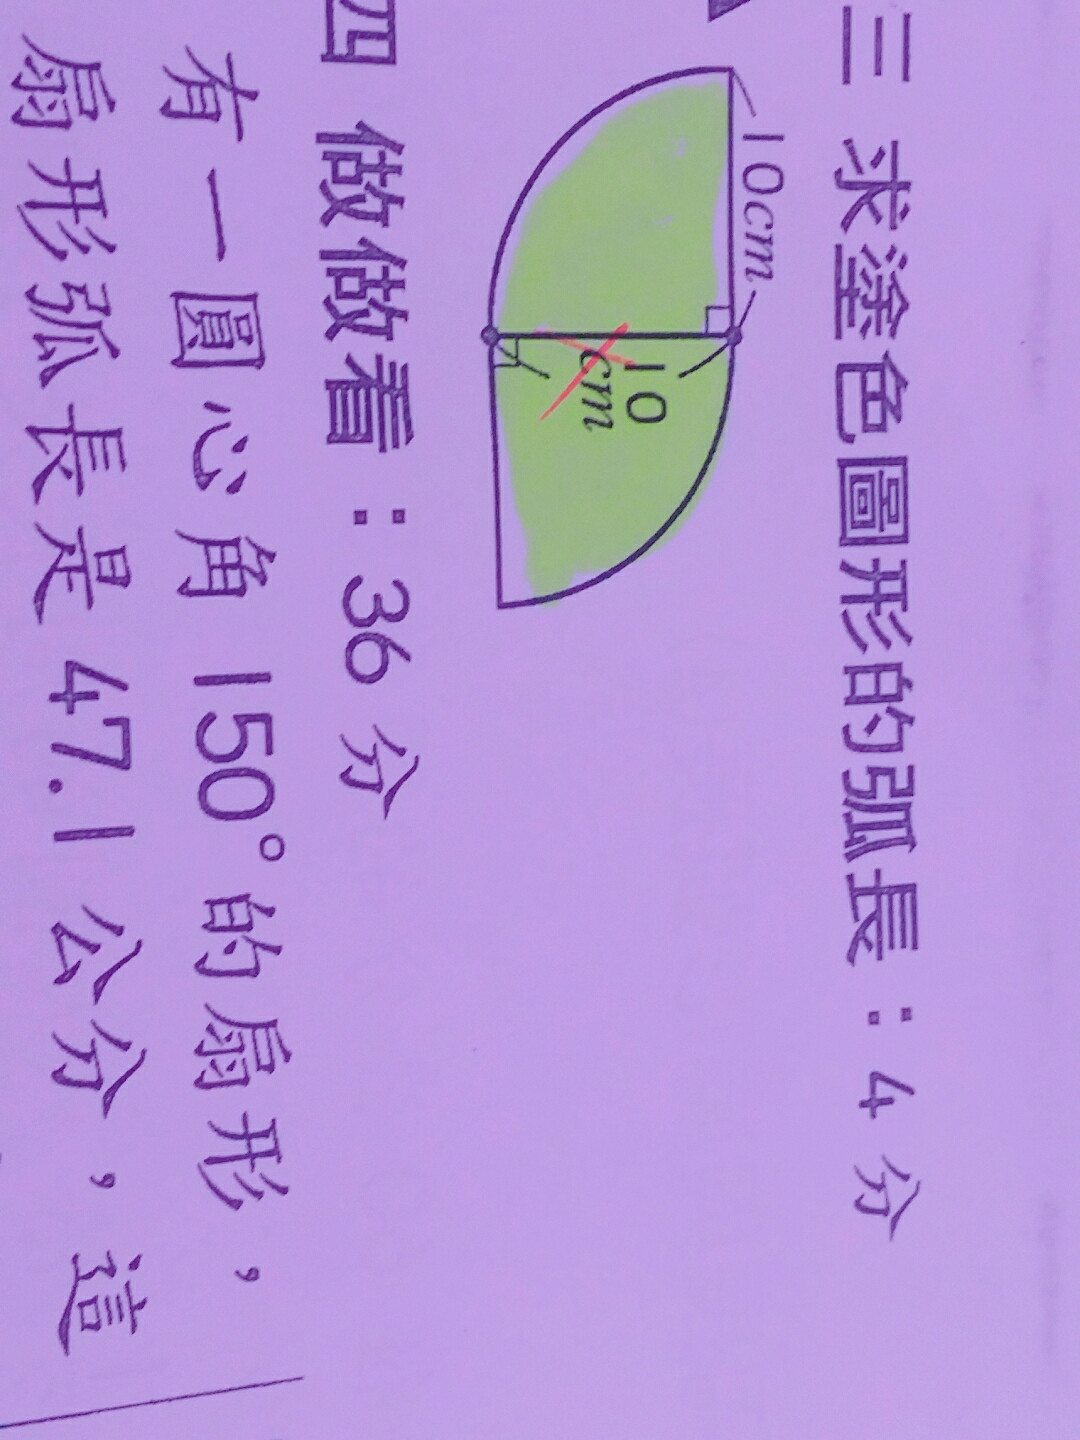 三 求塗色圖形的弧長：4 分
10cm
10
cm
四 做做看：36 分
有一圓心角 150° 的扇形，
扇形弧長是 47.1 公分，這